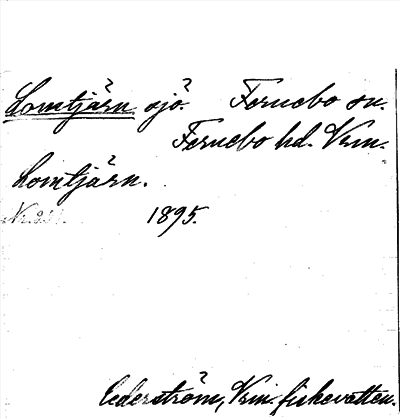 Lomtjärn sjö. Fernebo sn.
Fernebo hd. Vrm.
Lomtjärn.
1895.
Cederström, Vrm. fiskevatten.